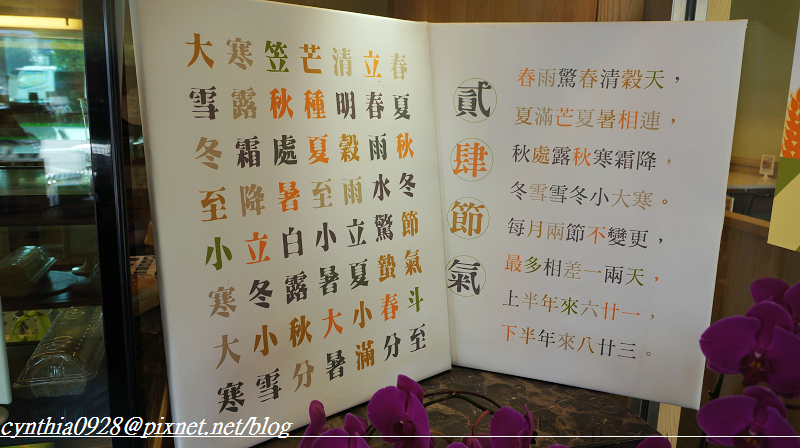 春夏秋冬節氣斗至
立春雨水驚蟄春分
清明穀雨立夏小滿
芒種夏至小暑大暑
笠秋處暑白露秋分
寒露霜降立冬小雪
大雪冬至小寒大寒
貳肆節氣
春雨驚春清穀天，
夏滿芒夏暑相連，
秋處露秋寒霜降，
冬雪雪冬小大寒。
每月兩節不變更，
最多相差一兩天，
上半年來六廿一，
下半年來八廿三。
cynthia0928@pixnet.net/blog